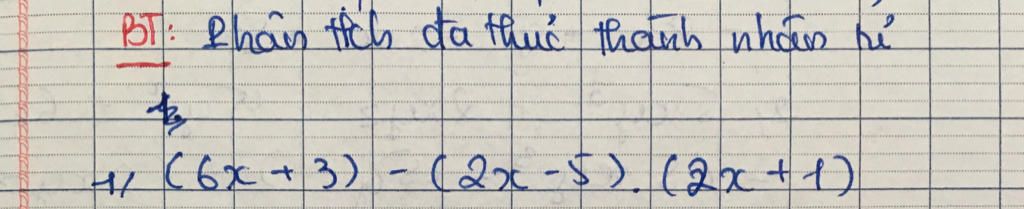 BT: Phân tích đa thức thành nhân tử
1/ (6x + 3) - (2x - 5). (2x + 1)